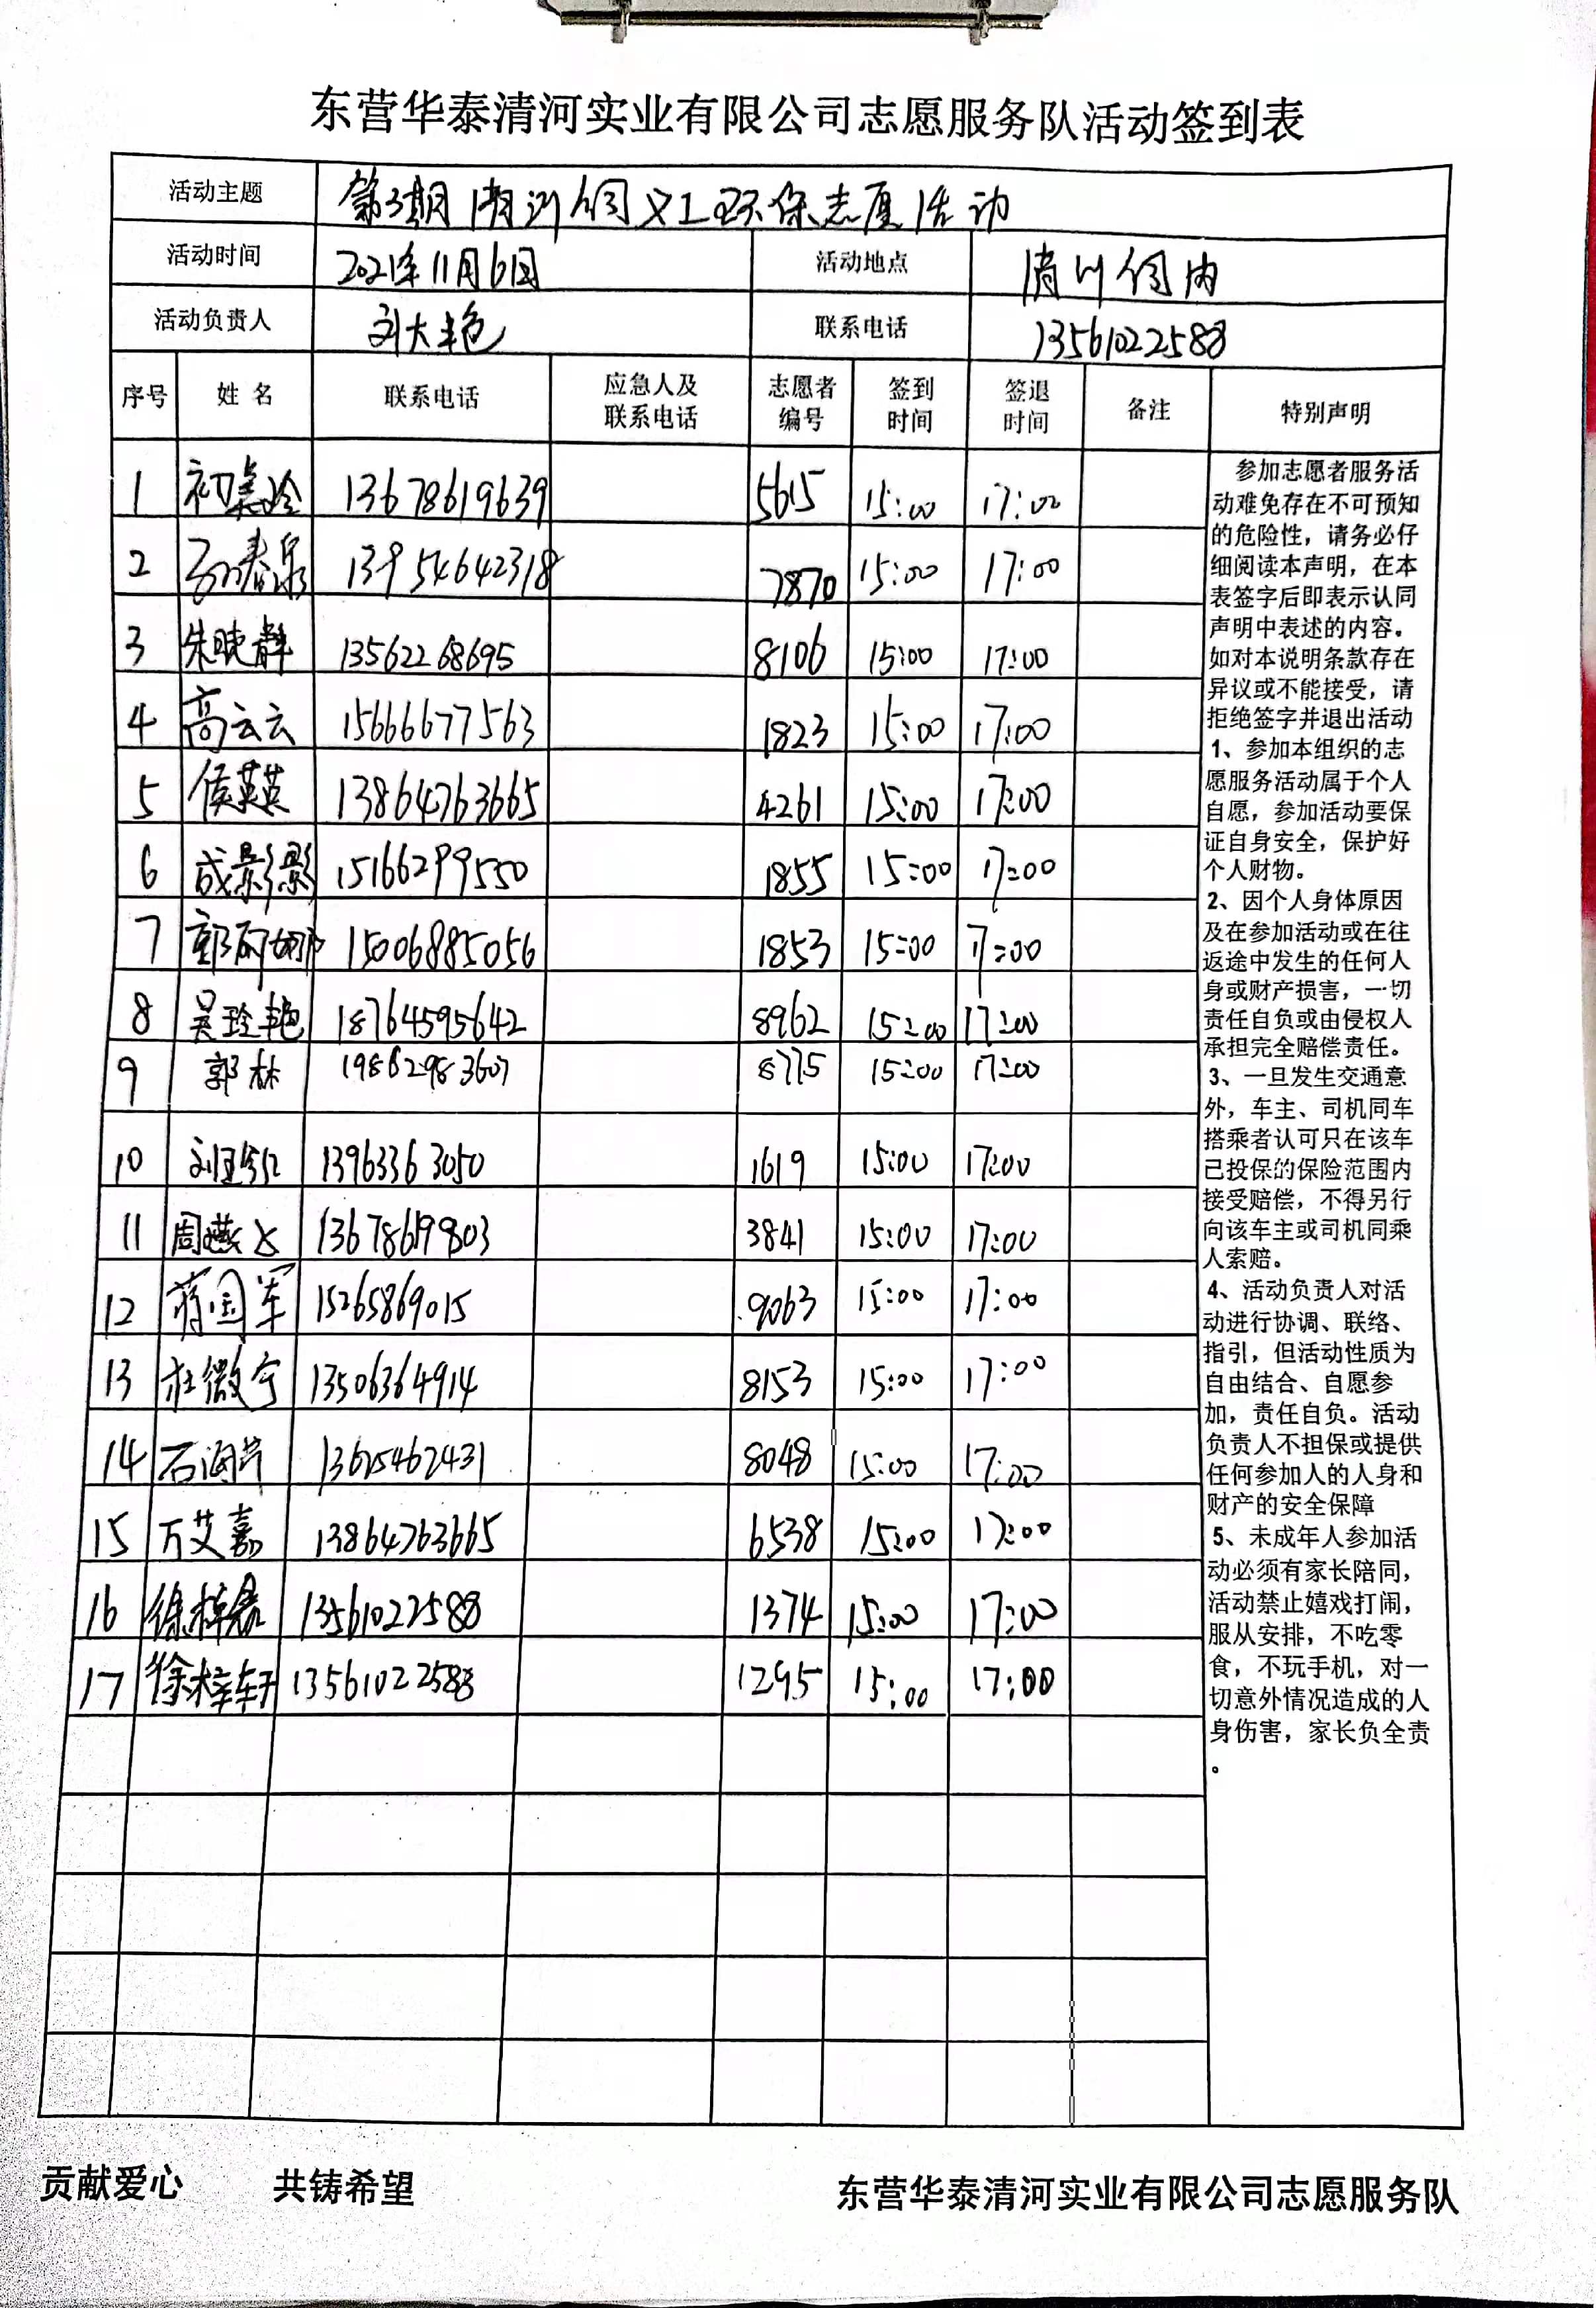 东营华泰清河实业有限公司志愿服务队活动签到表
活动主题 第3期清河伺义工环保志愿活动
活动时间 2021年11月6日 活动地点 清川伺内
活动负责人 刘大艳 联系电话 13561022588
序号 姓名 联系电话 应急人及联系电话 志愿者编号 签到时间 签退时间 备注 特别声明
1 13678619639 5615 15:00 17:00
2 孙春泉 13954642318 7870 15:00 17:00
3 朱晓静 13562268695 8106 15:00 17:00
4 高云云 15666677563 1823 15:00 17:00
5 侯英英 13864763665 4261 15:00 17:00
6 成影影 15166299550 1855 15:00 17:00
7 15006885056 1853 15:00 17:00
8 吴玲艳 18764595642 8962 15:00 17:00
9 郭林 19862983607 8775 15:00 17:00
10 13963363050 1619 15:00 17:00
11 周燕 13678619803 3841 15:00 17:00
12 蒋国军 15265869015 9063 15:00 17:00
13 杜微宁 13506364914 8153 15:00 17:00
14 石海芹 13615462431 8048 15:00 17:00
15 万艾嘉 13864763665 6538 15:00 17:00
16 徐梓 13561022588 1374 15:00 17:00
17 徐梓轩 13561022588 1295 15:00 17:00
参加志愿者服务活
动难免存在不可预知
的危险性，请务必仔
细阅读本声明，在本
表签字后即表示认同
声明中表述的内容。
如对本说明条款存在
异议或不能接受，请
拒绝签字并退出活动
1、参加本组织的志
愿服务活动属于个人
自愿，参加活动要保
证自身安全，保护好
个人财物。
2、因个人身体原因
及在参加活动或在往
返途中发生的任何人
身或财产损害，一切
责任自负或由侵权人
承担完全赔偿责任。
3、一旦发生交通意
外，车主、司机同车
搭乘者认可只在该车
已投保的保险范围内
接受赔偿，不得另行
向该车主或司机同乘
人索赔。
4、活动负责人对活
动进行协调、联络、
指引，但活动性质为
自由结合、自愿参
加，责任自负。活动
负责人不担保或提供
任何参加人的人身和
财产的安全保障
5、未成年人参加活
动必须有家长陪同，
活动禁止嬉戏打闹，
服从安排，不吃零
食，不玩手机，对一
切意外情况造成的人
身伤害，家长负全责
。
贡献爱心 共铸希望 东营华泰清河实业有限公司志愿服务队